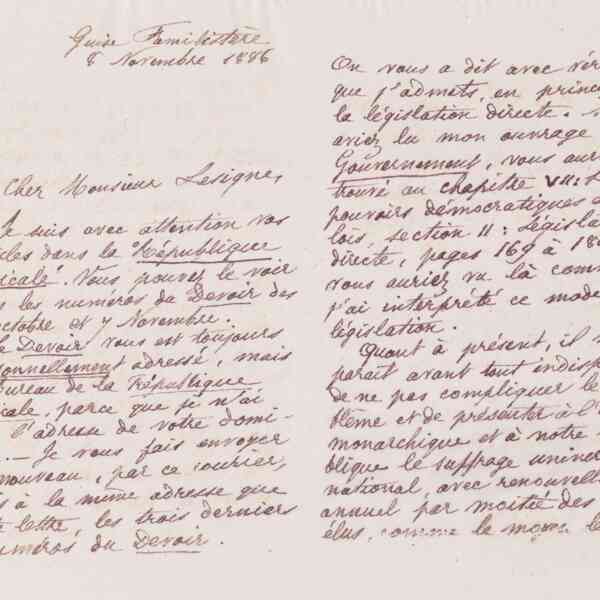 Guise Familistère
8 Novembre 1886
Cher Monsieur Lesigne,
Je suis avec attention vos
cles dans la République
icale. Vous pouvez le voir
s les numéros du Devoir des
octobre et 7 Novembre.
Le Devoir vous est toujours
onnellement adressé, mais
ureau de la République
cale, parce que je n'ai
l'adresse de votre domi-
. — Je vous fais envoyer
nouveau, par ce courier,
s à la même adresse que
e lettre, les trois derniers
uméros du Devoir.
On vous a dit avec vér
que j'admets, en princ
la législation directe.
aviez lu mon ouvrage
Gouvernement, vous aur
trouvé au chapitre VII:
pouvoirs démocratiques d
lois, section II: Législa
directe, pages 169 à 18
vous auriez vu là comm
j'ai interprété ce mode
législation.
Quant à présent, il m
parait avant tout indisp
de ne pas compliquer le
blème et de présenter à l'
monarchique et à notre
blique le suffrage univer
national, avec renouvelle
annuel par moitié des
élus, comme le moyen le